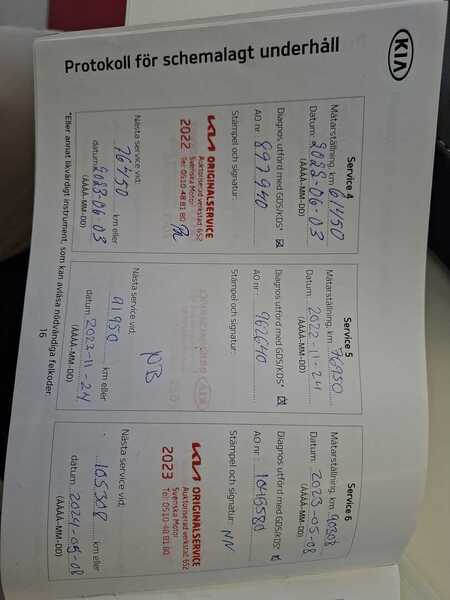 Protokoll för schemalagt underhåll
KIA
Service 4
Mätarställning, km 61450
Datum: 2022-06-03
(ÅÅÅÅ-MM-DD)
Diagnos utförd med GDS/KDS*
AO nr: 897940
Stämpel och signatur:
KIA ORIGINALSERVICE
Auktoriserad verkstad 652
Svenska Motor
2022 Tel: 0510-48 81 80
Nästa service vid:
76450 km eller
datum 2023-06-03
(ÅÅÅÅ-MM-DD)
Service 5
Mätarställning, km 76950
Datum: 2022-11-24
(ÅÅÅÅ-MM-DD)
Diagnos utförd med GDS/KDS*
AO nr: 967640
Stämpel och signatur:
NB
Nästa service vid:
91950 km eller
datum 2023-11-24
(ÅÅÅÅ-MM-DD)
Service 6
Mätarställning, km 90308
Datum: 2023-05-08
(ÅÅÅÅ-MM-DD)
Diagnos utförd med GDS/KDS*
AO nr: 1046580
Stämpel och signatur: NN
KIA ORIGINALSERVICE
Auktoriserad verkstad 652
Svenska Motor
2023 Tel 0510-48 81 80
Nästa service vid:
105308 km eller
datum 2024-05-08
(ÅÅÅÅ-MM-DD)
*Eller annat likvärdigt instrument, som kan avläsa nödvändiga felkoder
16